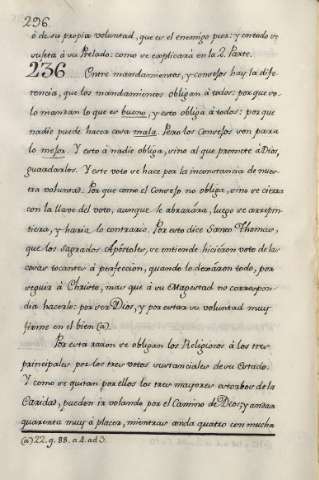 296
ò de su propia voluntad, que es el enemigo peor: y cortado se
sujeta á su Prelado: como se explicará en la 2. Parte.
236 Entre mandamientos, y consejos hay la dife-
rencia, que los mandamientos obligan à todos: porque so-
lo mandan lo que es bueno, y esto obliga à todos: porque
nadie puede hacer cosa mala. Pero los Consejos son para
lo mejor. Y esto à nadie obliga, sino al que promete á Dios,
guardarlos. Y este voto se hace por la inconstancia de nues-
tra voluntad. Porque como el Consejo no obliga, sino se cierra
con la llave del voto, aunque le abrazára, luego se arrepin-
tiera, y haria lo contrario. Por esto dice Santo Thomás,
que los Sagrados Apóstoles, se entiende hicieron voto de las
cosas tocantes à perfeccion, quando lo dexáron todo, por
seguir à Christo, mas que à su Magestad no correspon-
dia hacerlo: por ser Dios, y por estar su voluntad muy
firme en el bien (a).
Por esta razon se obligan los Religiosos à los tres
principales por los tres votos sustanciales de su estado.
Y como se quitan por ellos los tres mayores estorbos de la
Caridad, pueden ir volando por el Camino de Dios: y andan
quarenta muy à placer, mientras anda quatro con mucha
(a) 22. q. 88. a. 4. ad 3.